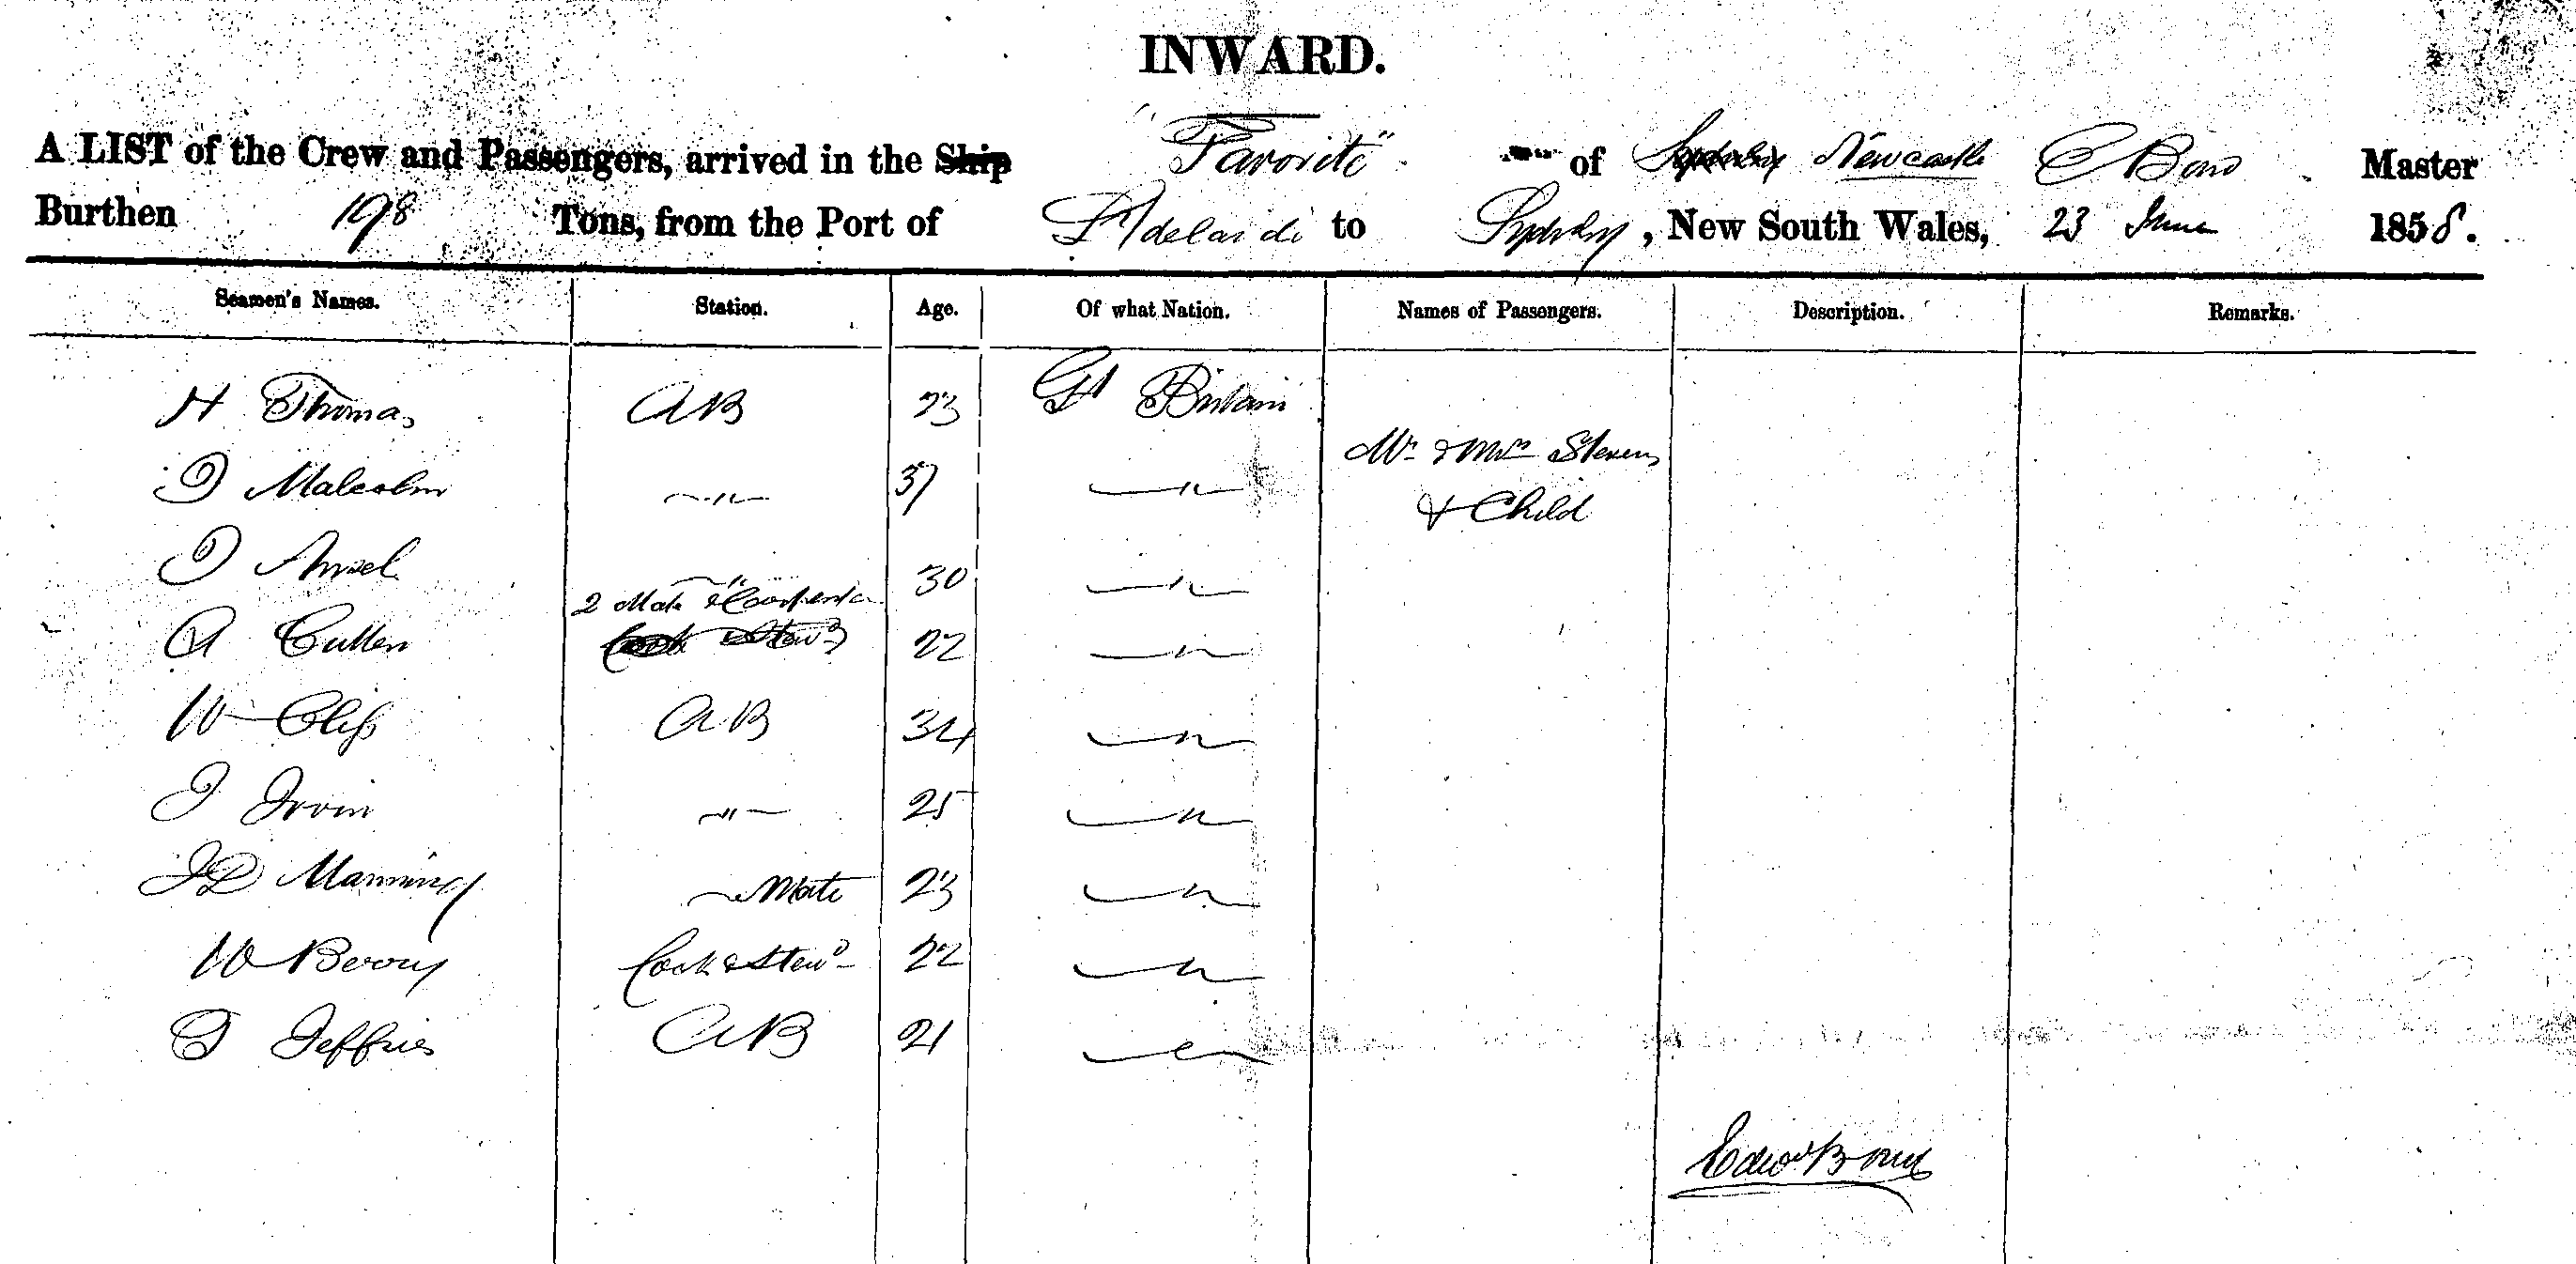 INWARD.
A LIST of the Crew and Passengers, arrived in the Ship "Favorite" of Sydney Newcastle E Bond Master
Burthen 198 Tons, from the Port of Adelaide to Sydney, New South Wales, 23 June 1858.
Seamen's Names. Station. Age. Of what Nation. Names of Passengers. Description. Remarks.
H Thomas AB 23 Gt Britain
Mr & Mrs Stevens
D Malcolm —"— 37 —"—
& Child
D Ansel —"— 30 —"—
2 Mate & Carpenter
A Cullen Cook & Stewd 22 —"—
W Cliff AB 34 —"—
J Irvin —"— 25 —"—
JD Manning Mate 23 —"—
W Berry Cook & Stewd 22 —"—
T Jeffries AB 21 —"—